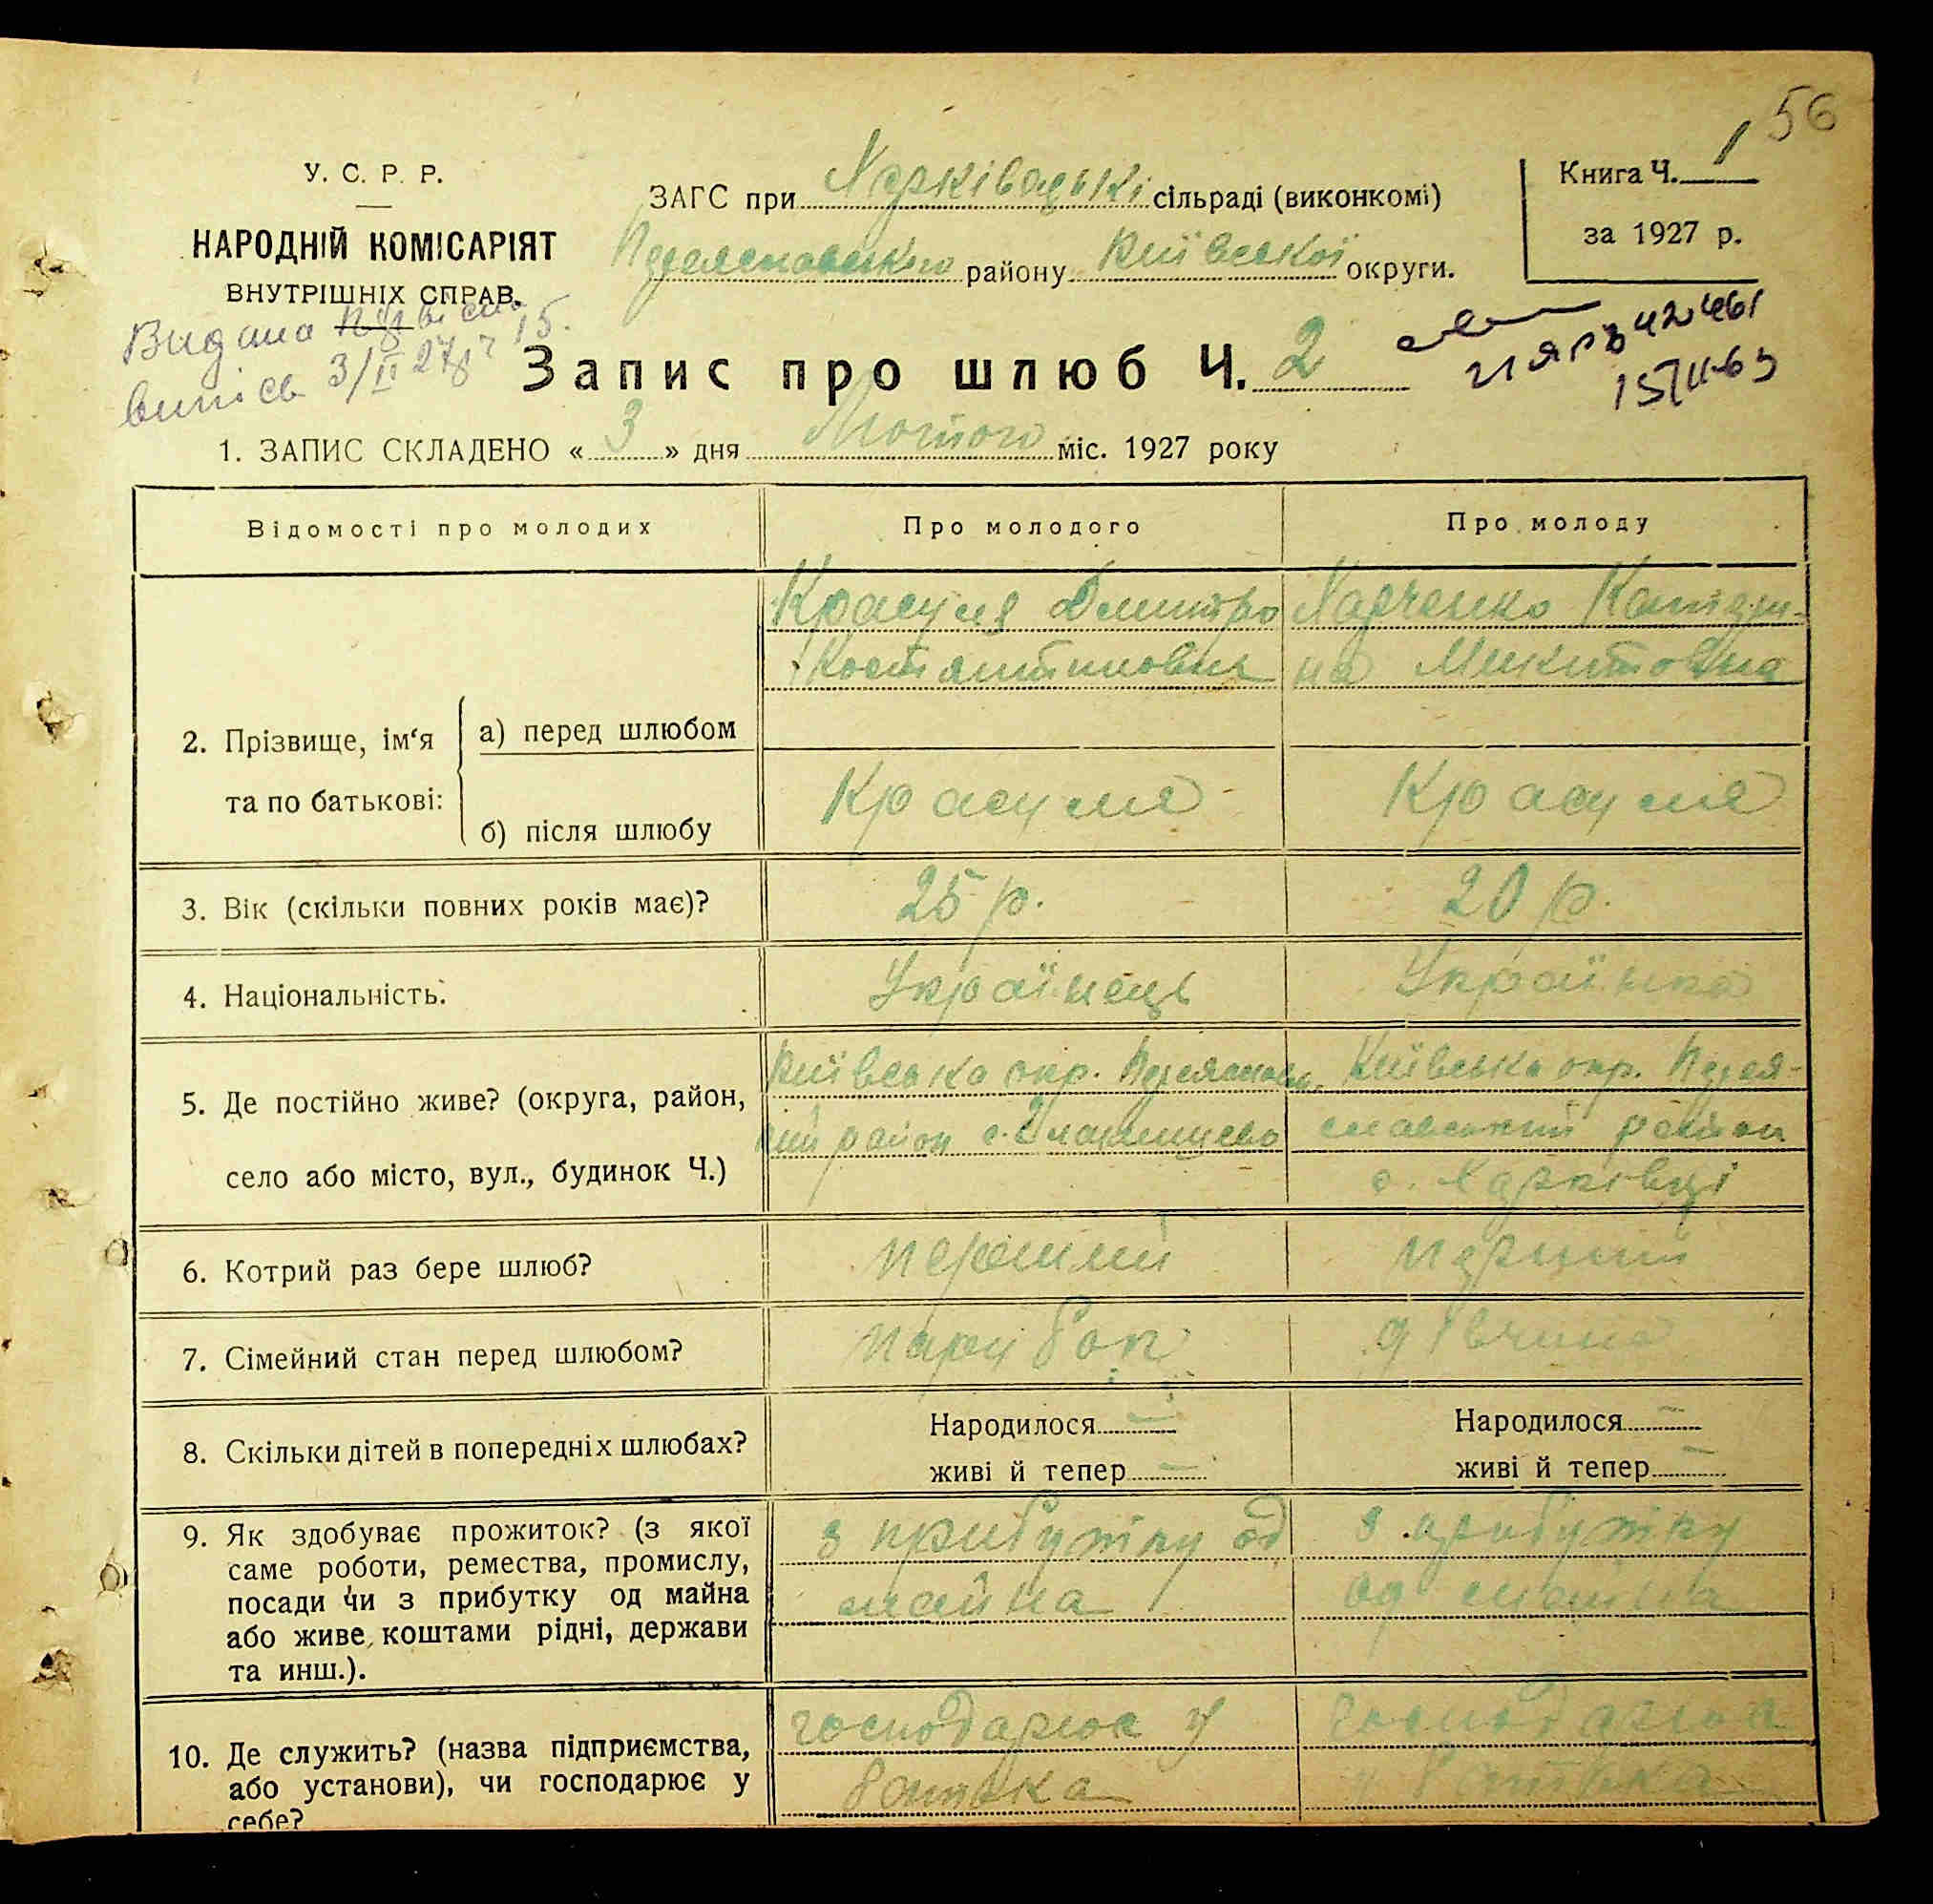 56
У. С. Р. Р.
НАРОДНІЙ КОМІСАРІЯТ
ВНУТРІШНІХ СПРАВ.
ЗАГС при Харківецькі сільраді (виконкомі)
Переяславського району Київської округи.
Книга Ч. 1
за 1927 р.
Видана
випісь 3/II 27р
Запис про шлюб Ч. 2
15/II-63
1. ЗАПИС СКЛАДЕНО « 3 » дня Лютого міс. 1927 року
Відомості про молодих
Про молодого
Про молоду
2. Прізвище, ім‘я
та по батькові:
а) перед шлюбом
б) після шлюбу
Красуля Дмитро
Костянтинович
Харченко Катери-
на Микитовна
Красуля
Красуля
3. Вік (скільки повних років має)?
25 р.
20 р.
4. Національність.
Українець
Українка
5. Де постійно живе? (округа, район,
село або місто, вул., будинок Ч.)
Київська окр. Переяславсь-
кий район с.
Київська окр. Перея-
славський район
с. Харківці
6. Котрий раз бере шлюб?
перший
перший
7. Сімейний стан перед шлюбом?
парубок
дівчина
8. Скільки дітей в попередніх шлюбах?
Народилося —
живі й тепер —
Народилося —
живі й тепер —
9. Як здобуває прожиток? (з якої
саме роботи, ремества, промислу,
посади чи з прибутку од майна
або живе коштами рідні, держави
та инш.).
з прибутку од
майна
з прибутку
од майна
10. Де служить? (назва підприємства,
або установи), чи господарює у
себе?
господарює у
батька
господарює
у батька